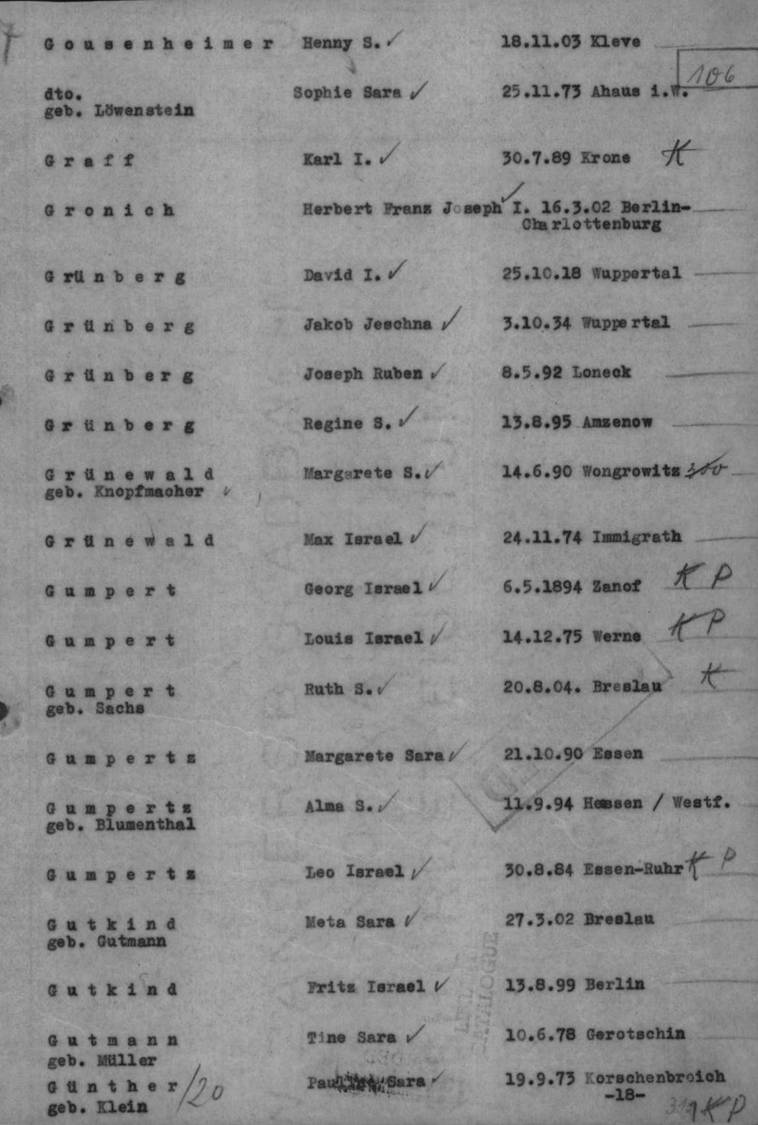 Gousenheimer Henny S. ✓ 18.11.03 Kleve
106
dto. Sophie Sara ✓ 25.11.73 Ahaus i.W.
geb. Löwenstein
Graff Karl I. ✓ 30.7.89 Krone K
Gronich Herbert Franz Joseph I. ✓ 16.3.02 Berlin-
Charlottenburg
Grünberg David I. ✓ 25.10.18 Wuppertal
Grünberg Jakob Jeschna ✓ 3.10.34 Wuppertal
Grünberg Joseph Ruben ✓ 8.5.92 Loneck
Grünberg Regine S. ✓ 13.8.95 Amzenow
Grünewald Margarete S. ✓ 14.6.90 Wongrowitz
geb. Knopfmacher ✓
Grünewald Max Israel ✓ 24.11.74 Immigrath
Gumpert Georg Israel ✓ 6.5.1894 Zanof K P
Gumpert Louis Israel ✓ 14.12.75 Werne K P
Gumpert Ruth S. ✓ 20.8.04. Breslau K
geb. Sachs
Gumpertz Margarete Sara ✓ 21.10.90 Essen
Gumpertz Alma S. ✓ 11.9.94 Hessen / Westf.
geb. Blumenthal
Gumpertz Leo Israel ✓ 30.8.84 Essen-Ruhr K P
Gutkind Meta Sara ✓ 27.3.02 Breslau
geb. Gutmann
Gutkind Fritz Israel ✓ 13.8.99 Berlin
CATALOGUE
Gutmann Tine Sara ✓ 10.6.78 Gerotschin
geb. Müller
Günther /20 Sara ✓ 19.9.73 Korschenbroich
geb. Klein -18-
K P